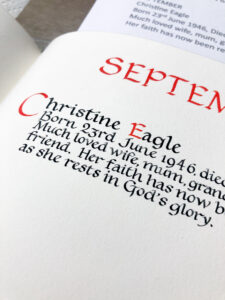 TEMBER
Christine Eagle
Born 23rd June 1946, Died
Much loved wife, mum, g
Her faith has now been re
SEPTEM
Christine Eagle
Born 23rd June 1946, died
Much loved wife, mum, grand
friend. Her faith has now b
as she rests in God's glory.